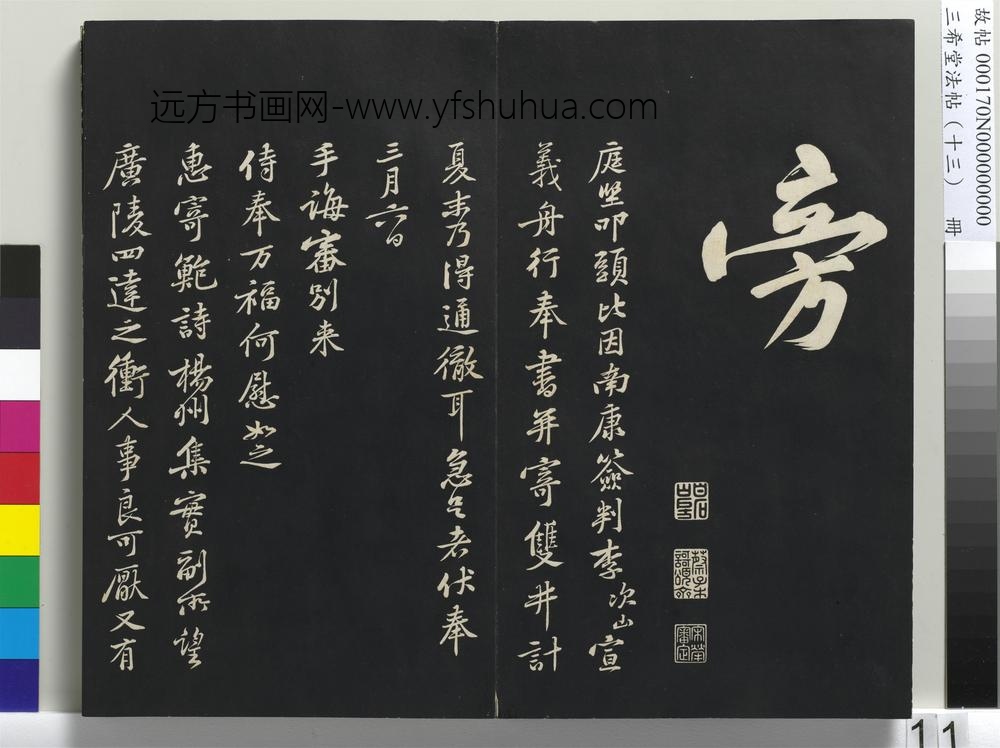 旁
庭堅叩頭比因南康簽判李次山宣
義舟行奉書并寄雙井計
夏末乃得通徹耳急足者伏奉
三月六日
手誨審別来
侍奉万福何慰如之
惠寄鮑詩楊州集實副所望
廣陵四達之衝人事良可厭又有
远方书画网-www.yfshuhua.com
故帖 000170N000000000
三希堂法帖（十三） 冊
11